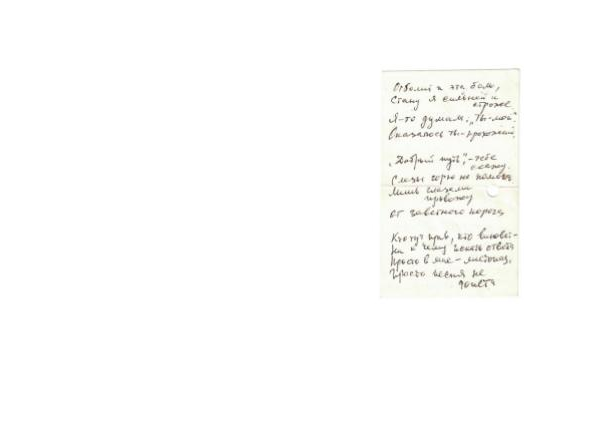 Отболит и эта боль,
Стану я сильней и
строже
Я-то думала: „Ты-мой"
Оказалось ты-прохожий.
„Добрый путь",-тебе
скажу.
Слезы горю не помога
Лишь глазами
провожу
от заветного порога
Кто тут прав, кто виноват-
Ни к чему искать ответа
Просто в мае - листопад,
Просто песня не
допета